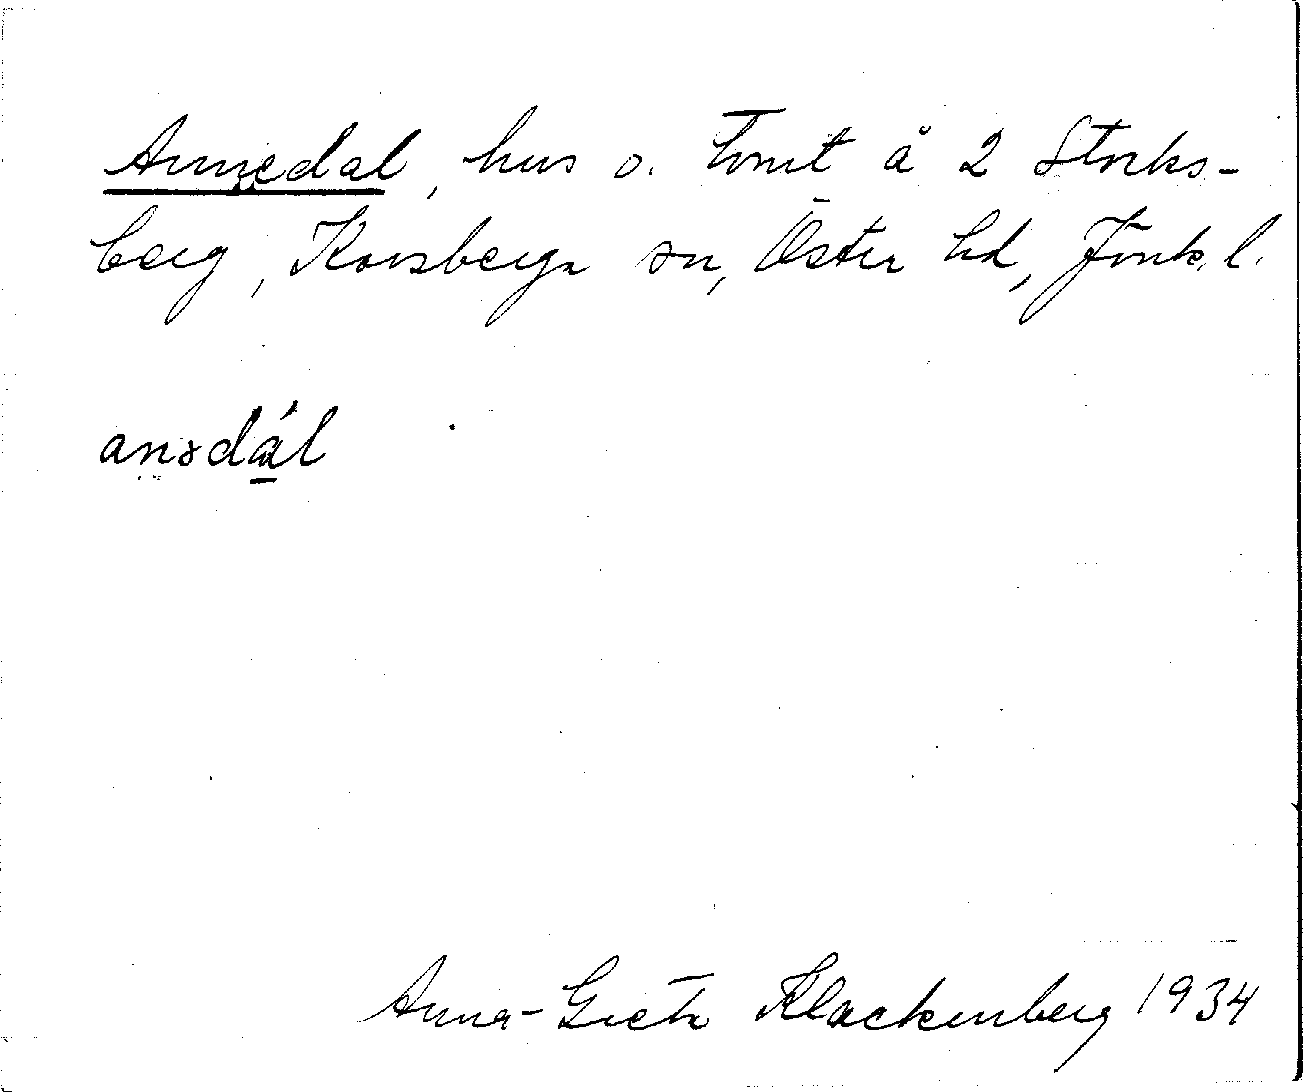 Annedal, hus o. tomt å 2 Storks-
berg, Korsberga sn, Öster hd, Jönk. l.
ansdál
Anna-Greta Klackenberg 1934